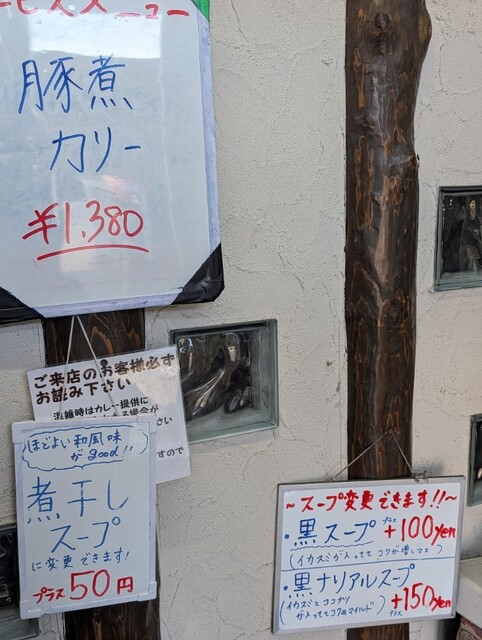 ービスメニュー
豚煮
カリー
¥1,380
ご来店のお客様必ず
お読み下さい
混雑時はカレー提供に
ほどよい和風味
がgood!!
煮干し
スープ
に変更できます!
プラス50円
～スープ変更できます!!～
・黒スープ プラス+100yen
(イカスミが入ってて コクが増しマス)
・黒ナリアルスープ
(イカスミとココナツ
が入っててコク&マイルド)
+150yen
プラス